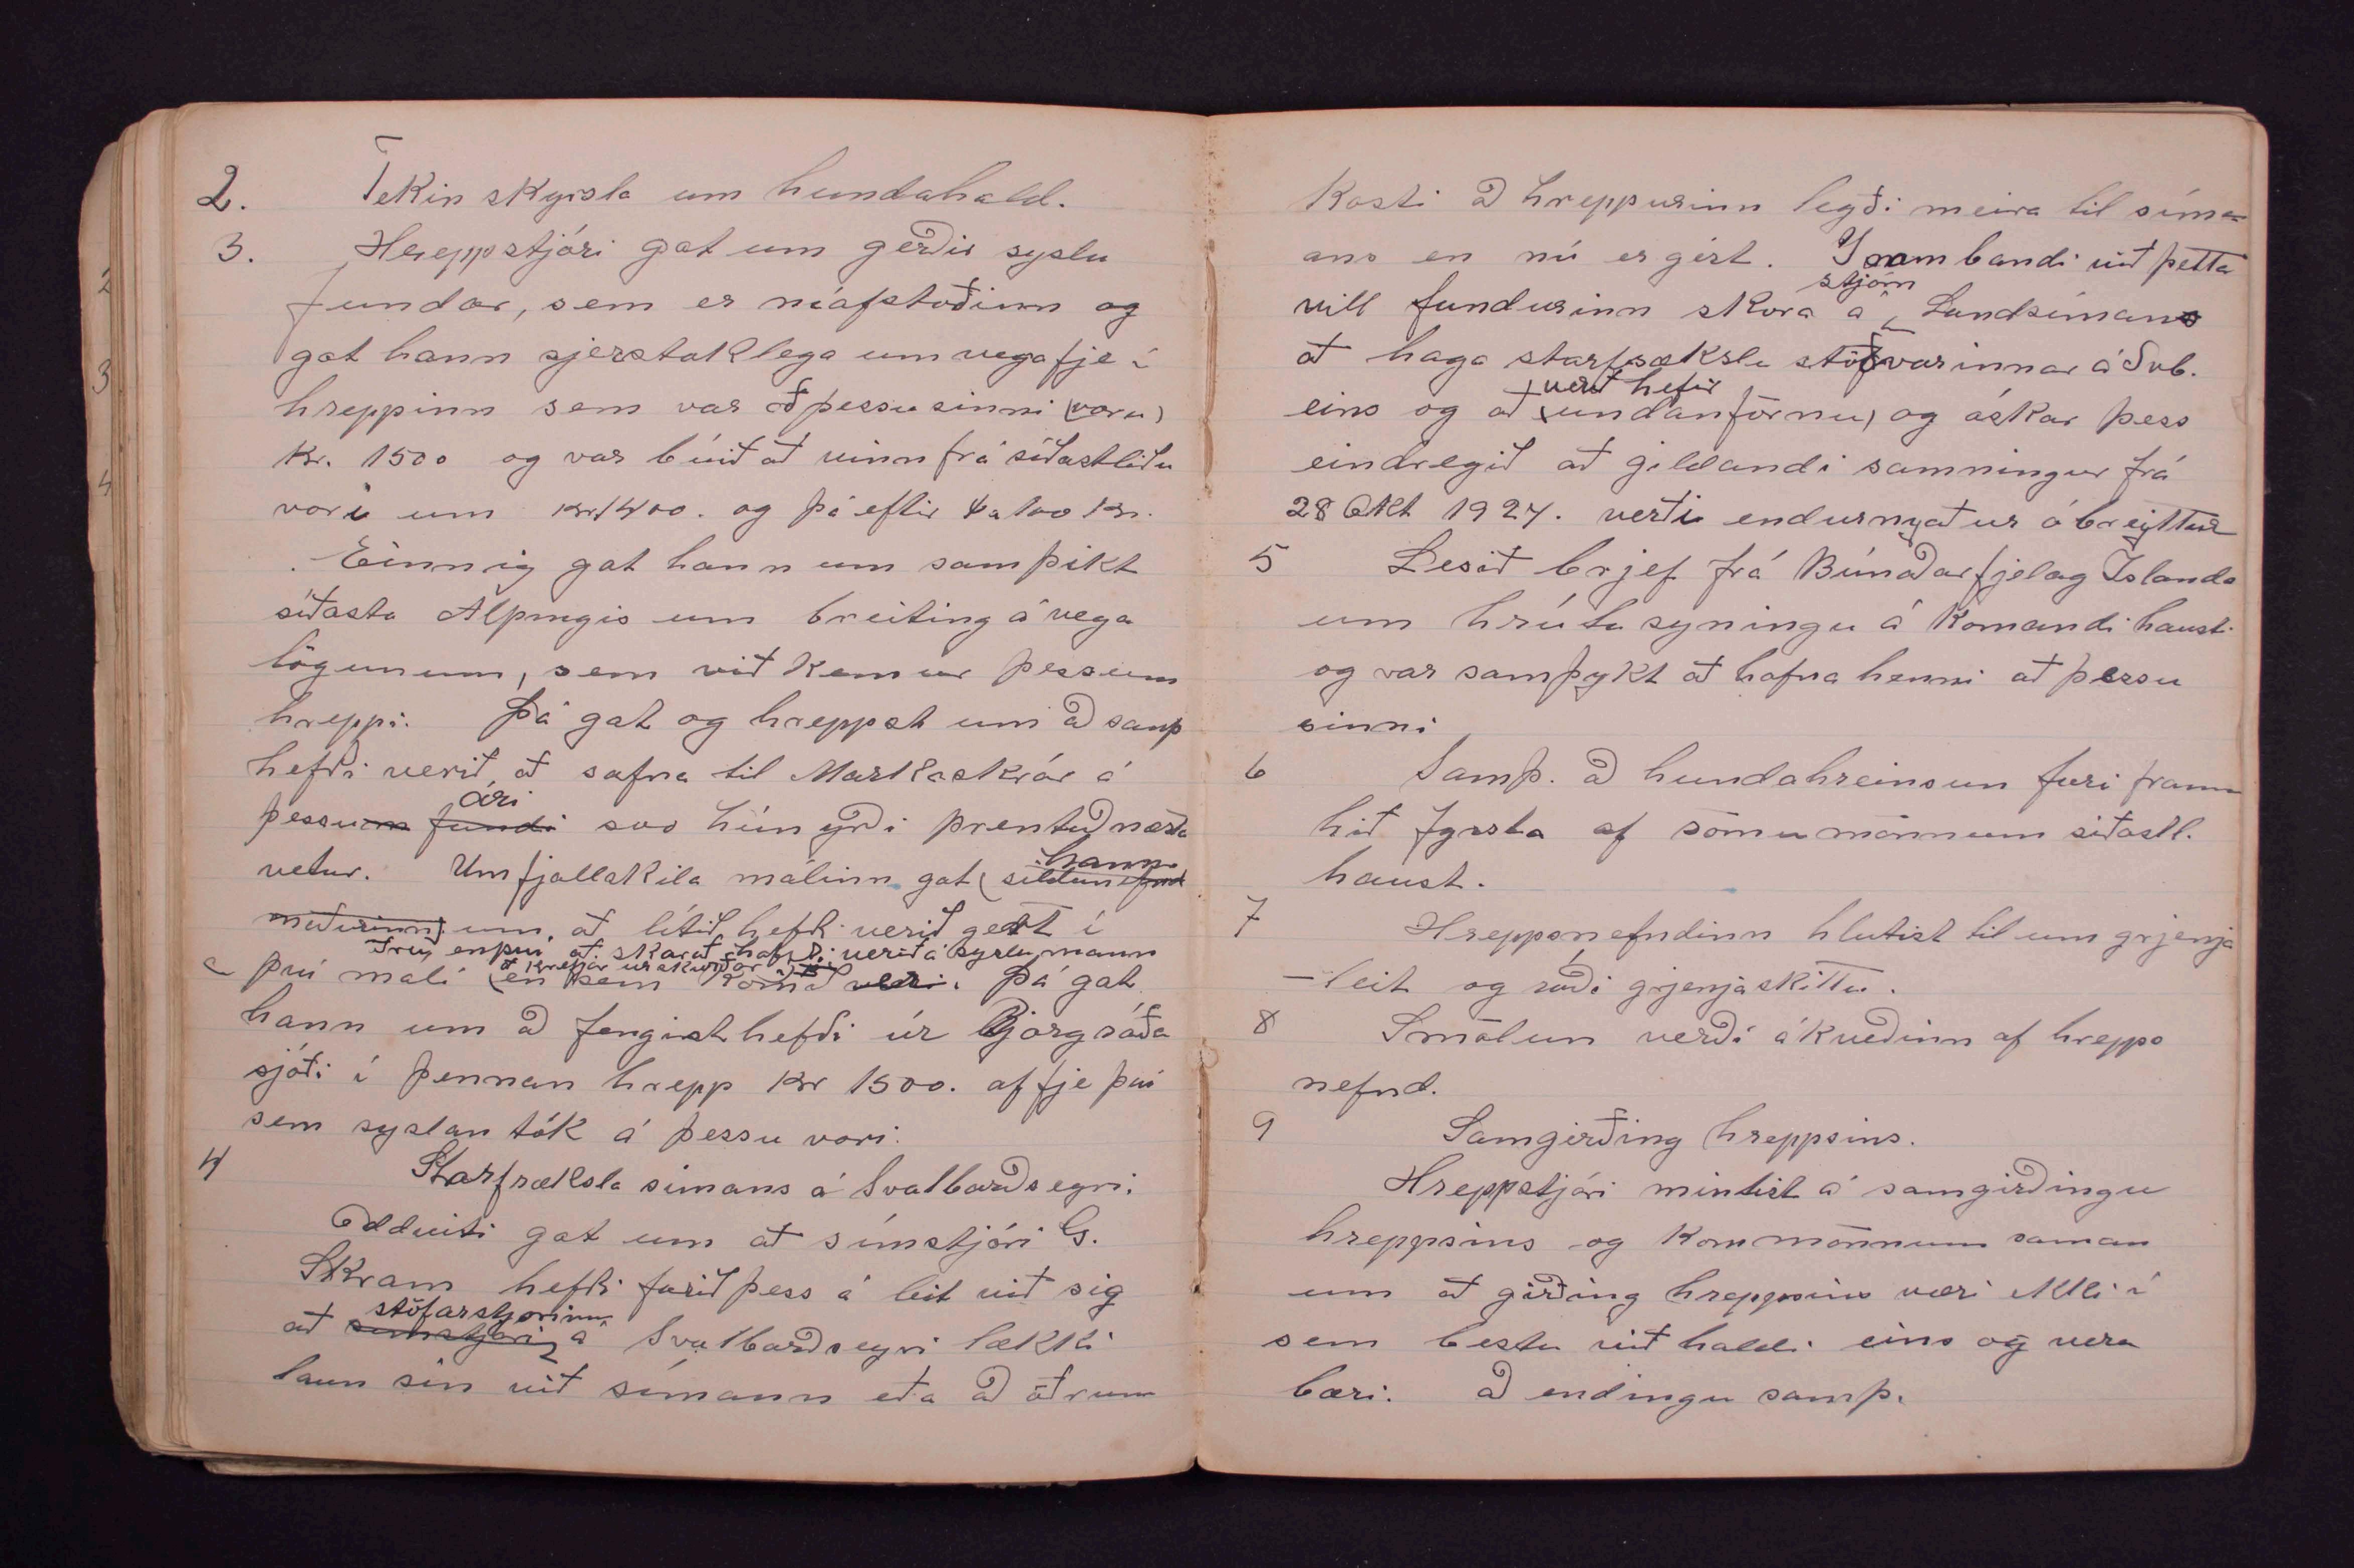 2. Tekin skyrsla um hundahald.
3. Hreppstjóri gat um gerðir syslu
fundar, sem er níafstoðinn og
gat hann sjerstaklega um vegafje í
hreppinn sem var að þessu sinni (voru)
kr. 1500 og var búið að vinn frá síðastliðu
vori um kr 1400. og þá eftir 100 kr.
Einnig gat hann um samþikt
síðasta Alþingis um breiting á vega
lögunum, sem við kemur þessum
hreppi. Þá gat og hreppst um að samþ
hefði verið, að safna til Markaskrár á
þessum fundi ári svo hún yrði prentuð næsta
vetur. Um fjallskila málinn gat hann
um, að lítið hefði verið gert í
því máli en sem komið veri. Þá gat
hann um að fengist hefði úr Bjargráða
sjóði í þennan hrepp kr 1500. af fje því
sem syslan tók á þessu vori.
4 Starfræksla símans á Svalbarðseyri.
Oddviti gat um að símstjóri G.
Skram hefði farið þess á leit við sig
að símstjóri stöfarstjorinn á Svalbarðseyri lækki
laun sín við símann eða að öðrum
2
3
4
kosti að hreppurinn legði meira til síma-
ans en nú er gert. I sambandi við þetta
vill fundurinn skora á stjórn Landsímans
að haga starfsrækslu stöðvarinnar á Svb.
eins og að verið hefir undanförnu, og óskar þess
eindregið að gildandi samningur frá
28 Okt 1927. verði endurnyaður óbreyttur
5 Lesið brjef frá Búnaðarfjelag Islands
um hrútasyningu á komandi hausti
og var samþykt að hafna henni að þessu
sinni
6 Samþ. að hundahreinsun fari framm
hið fyrsta af sömu mönnum síðastl.
haust.
7 Hreppsnefndinn hlutist til um grjenja
-leit og ráði grjenjaskittu.
8 Smölun verði ákveðinn af hrepps
nefnd.
9 Samgirðing hreppsins.
Hreppstjóri mintist á samgirðingu
hreppsins og kom mönnum saman
um að girðing hreppsins væri í
sem bestu við haldi eins og vera
bæri. Að endingu samþ.